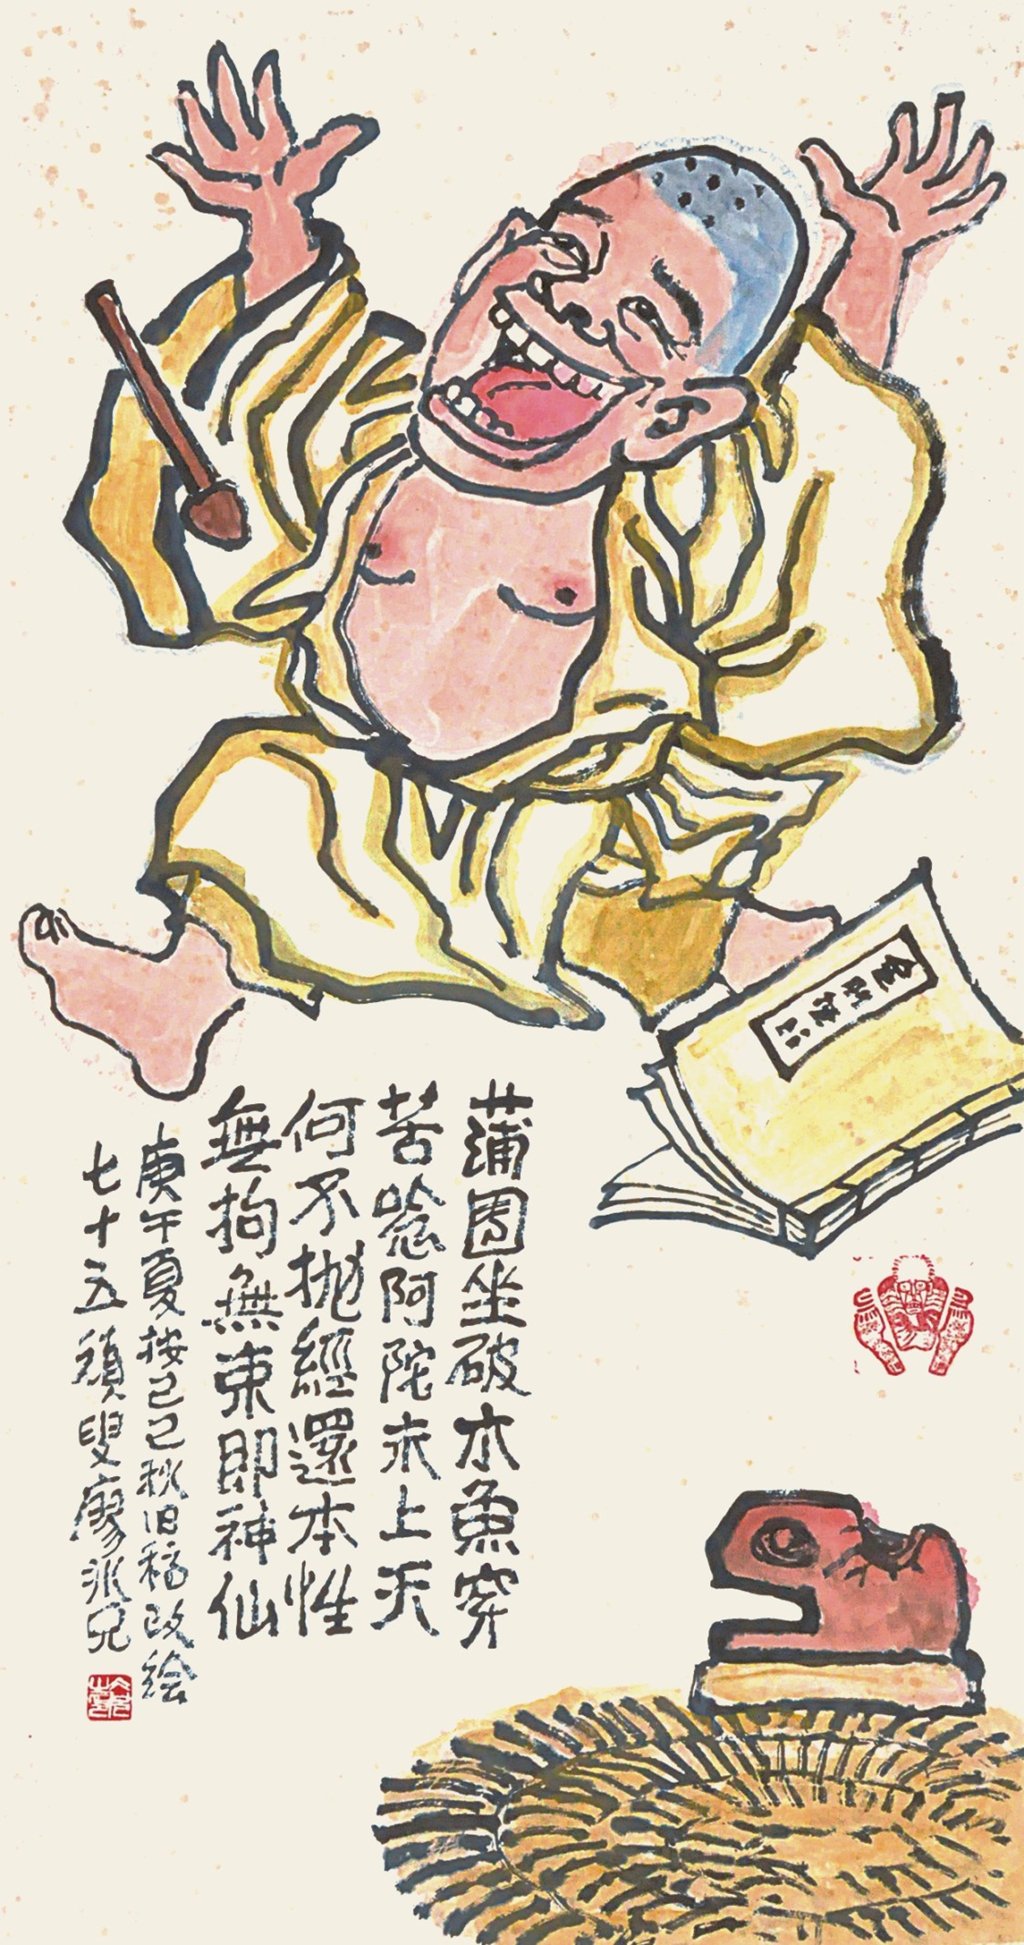 蒲團坐破木魚穿
苦唸阿陀未上天
何不抛經還本性
無拘無束即神仙
庚午夏按己巳秋旧稿改繪
七十五頑叟廖冰兄